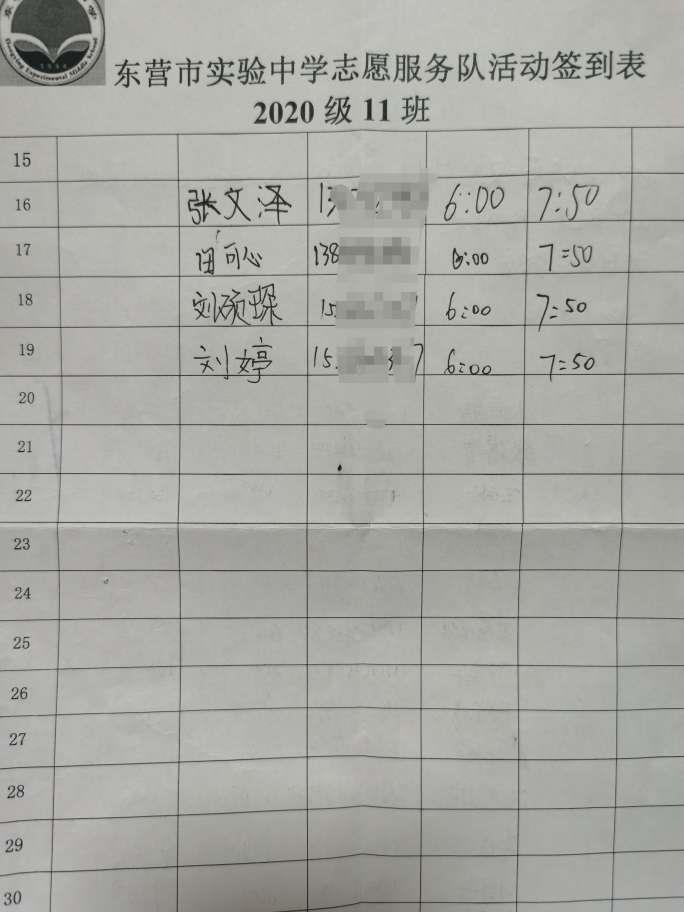 Dongying Experimental Middle School
1954
东营市实验中学志愿服务队活动签到表
2020 级 11 班
15
16 张文泽 13 6:00 7:50
17 田可心 138 6:00 7:50
18 刘硕琛 15 6:00 7:50
19 刘婷 15 37 6:00 7:50
20
21
22
23
24
25
26
27
28
29
30